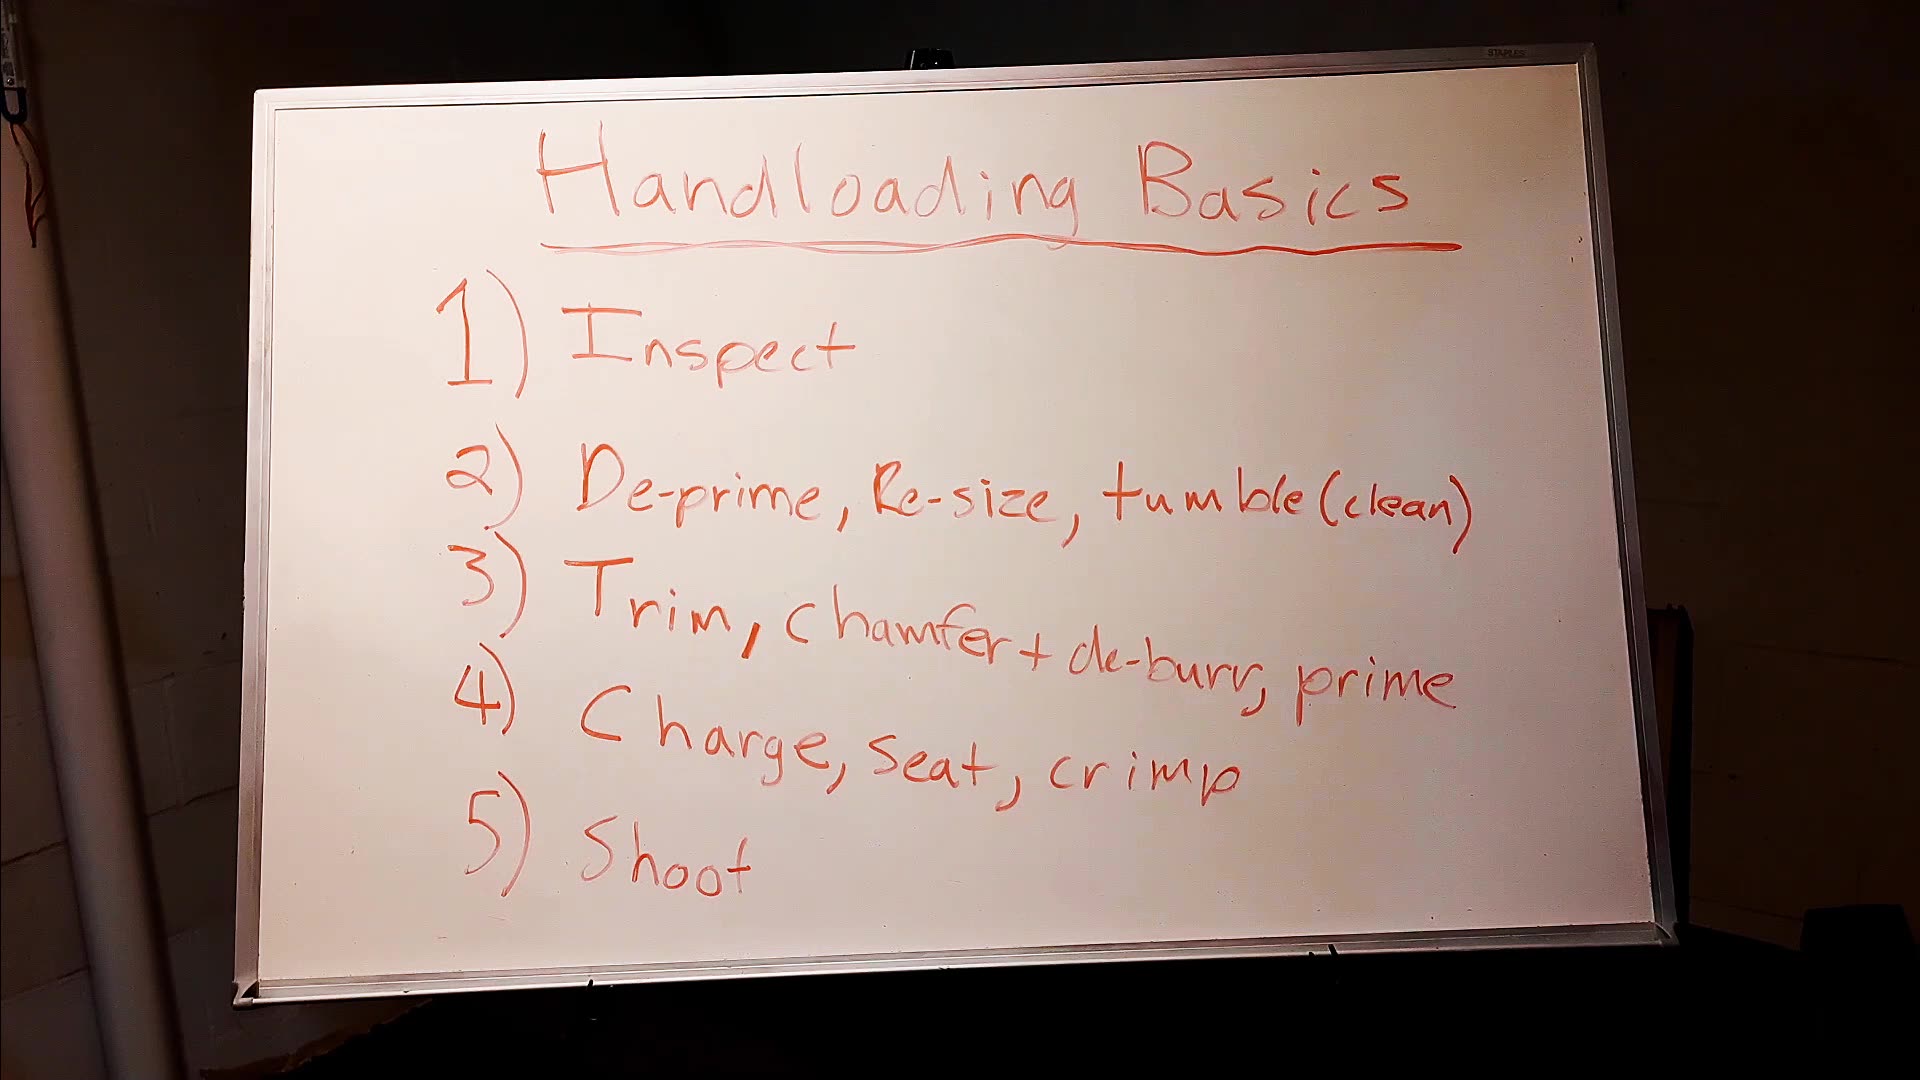 STAPLES
Handloading Basics
1) Inspect
2) De-prime, Re-size, tumble (clean)
3) Trim, chamfer + de-burr, prime
4) Charge, seat, crimp
5) Shoot